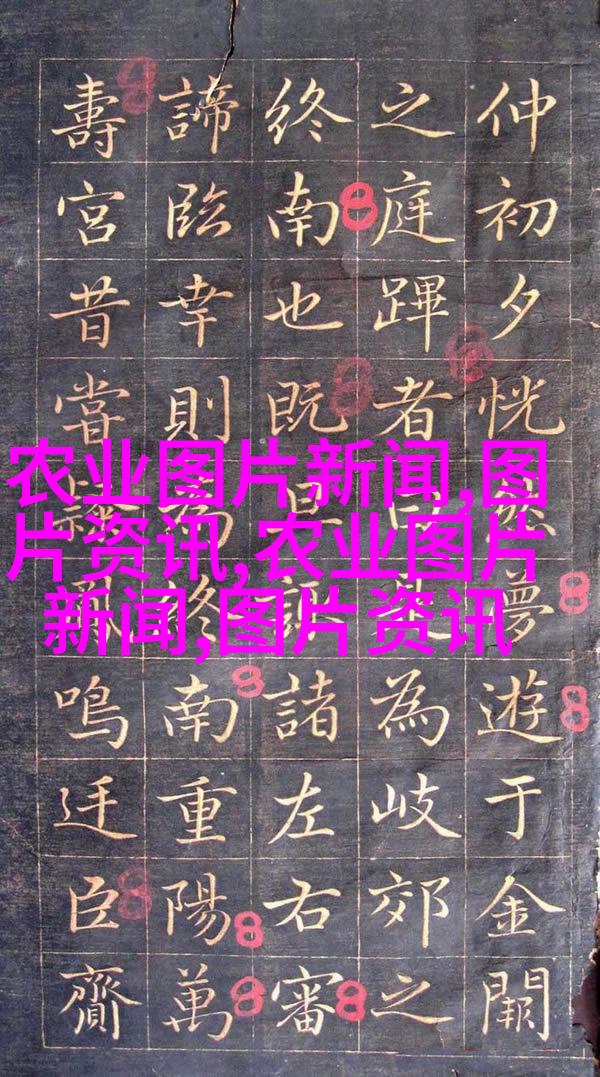 仲初夕恍然夢遊于金闕
之庭蹕者曰為岐郊之
終南也既諸左右審
諦臨幸則為終南重陽萬
壽宮昔嘗鳴廷臣齎
农业图片新闻,图
片资讯,农业图片
新闻,图片资讯